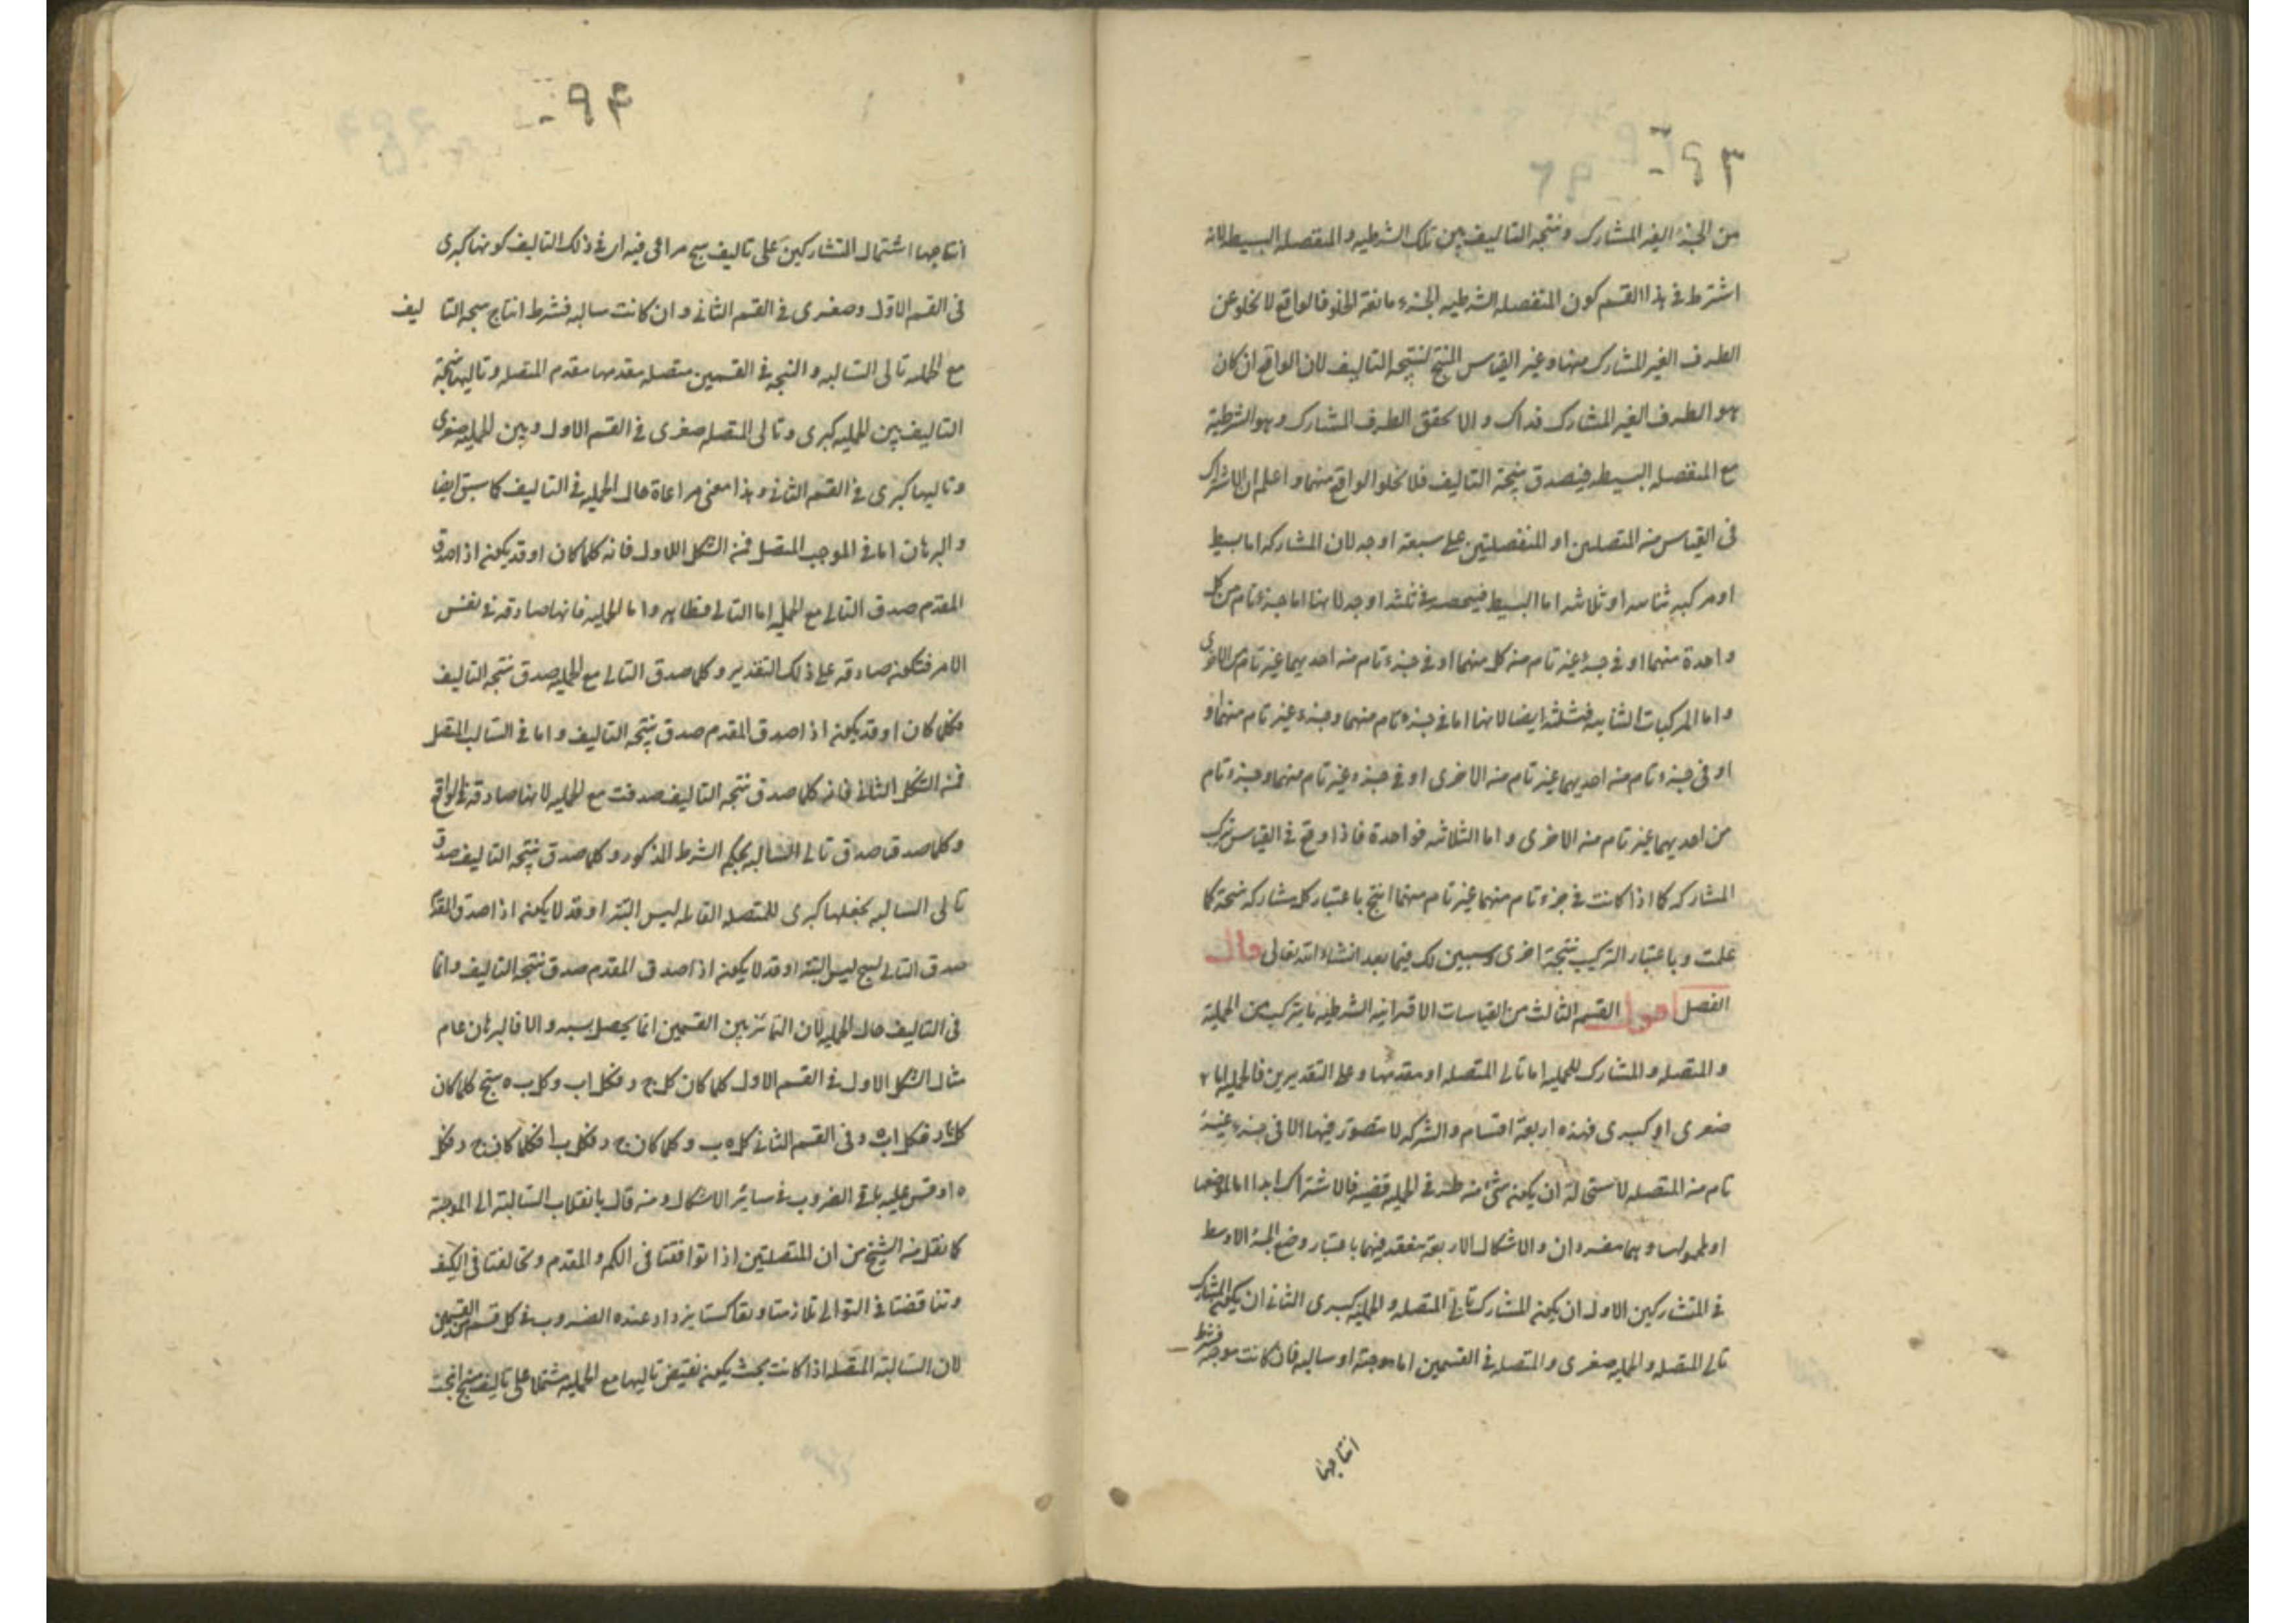 ٦٩٣
من الجزء الغير المشارك ونتيجة التاليف بين تلك الشرطية والمنفصله البسيطه لانه
اشترط فى هذا القسم كون المنفصله الشرطيه الجزء مانعة الخلو فالواقع لا يخلو عن
الطرف الغير المشارك منها وعن القياس المنتج لنتيجة التاليف لان الواقع ان كان
هو الطرف الغير المشارك فذاك والا تحقق الطرف المشارك وهو الشرطية
مع المنفصله البسيطه فيصدق نتيجة التاليف فلا يخلو الواقع منهما واعلم ان الاشتراك
فى القياس من المتصلين او المنفصلتين على سبعة اوجه لان المشاركه اما بسيط
او مركبه ثنائيه او ثلاثيه اما البسيط فيحصر فى ثلثه اوجه لانها اما جزء تام من كل
واحدة منهما او فى جزء غير تام من كل منهما او فى جزء تام من احديهما غير تام من الاخرى
واما المركبات الثنائيه فثلثه ايضا لانها اما فى جزء تام منهما وجزء غير تام منهما و
او فى جزء تام من احديهما غير تام من الاخرى او فى جزء غير تام منهما وجزء تام
من احديهما غير تام من الاخرى واما الثلاثيه فواحدة فاذا وقع فى القياس تركب
المشاركه كما اذا كانت فى جزء تام منهما غير تام منهما انتج باعتبار كل مشاركه نتيجة كما
علمت وباعتبار التركيب نتيجة اخرى وسيبين لك فيما بعد انشاء الله تعالى قال
الفصل اقول القسم الثالث من القياسات الاقترانيه الشرطيه ما يتركب من الحملية
والمتصله والمشارك للحمليه اما تالى المتصله او مقدمها وعلى التقديرين فالحمليه اما
صغرى او كبرى فهذه اربعة اقسام والشركه لا يتصور فيها الا فى جزء غير
تام من المتصله لاستحالة ان يكون شئ من طرفى الحمليه قضيه فالاشتراك ابدا اما لموضوعها
او لمحمولها وهما مفردان والاشكال الاربعة منعقد فيهما باعتبار وضع الجزء الاوسط
فى المتشاركين الاول ان يكون المشارك تالى المتصله والحمليه كبرى الثانى ان يكون المشارك
تالى المتصله والحمليه صغرى والمتصله فى القسمين اما موجبة او سالبه فان كانت موجبة فشرط
انتاجها
٦٩٤
انتاجها اشتمال المتشاركين على تاليف منتج مراعى فيه اى فى ذلك التاليف كونها كبرى
فى القسم الاول وصغرى فى القسم الثانى وان كانت سالبه فشرط انتاج نتيجة التا ليف
مع الحمليه تالى السالبه والنتيجه فى القسمين متصله مقدمها مقدم المتصله وتاليها نتيجة
التاليف بين الحمليه كبرى وتالى المتصله صغرى فى القسم الاول وبين الحمليه صغرى
وتاليها كبرى فى القسم الثانى وهذا معنى مراعاة حال الحمليه فى التاليف كما سبق ايضا
والبرهان اما فى الموجب المتصل فمن الشكل الاول فانه كلما كان او قد يكون اذا صدق
المقدم صدق التالى مع الحمليه اما التالى فظاهر واما الحمليه فانها صادقه فى نفس
الامر فتكون صادقه على ذلك التقدير وكلما صدق التالى مع الحمليه صدق نتيجة التاليف
فكلما كان او قد يكون اذا صدق المقدم صدق نتيجة التاليف واما فى السالب المتصل
فمن الشكل الثانى فانه كلما صدق نتيجة التاليف صدقت مع الحمليه لانها صادقه فى الواقع
وكلما صدقا صدق تالى السالبه بحكم الشرط المذكور وكلما صدق نتيجة التاليف صدق
تالى السالبه نجعلها كبرى للمتصله القائله ليس البته او قد لا يكون اذا صدق المقدم
صدق التالى لينتج ليس البته او قد لا يكون اذا صدق المقدم صدق نتيجة التاليف وانما
فى التاليف حال الحمليه لان التمائز بين القسمين انما يحصل بسببه والا فالبرهان عام
مثال الشكل الاول فى القسم الاول كلما كان كل ج د فكل اب وكل ب ه ينتج كلما كان
كل ج د فكل اه وفى القسم الثانى كل ه ب وكلما كان ج د فكل ب ا فكلما كان ج د فكل
ه ا وقس عليه باقى الضروب فى سائر الاشكال ومن قال بانقلاب السالبة الى الموجبة
كما نقل من الشيخ من ان المتصلتين اذا توافقتا فى الكم والمقدم وتخالفتا فى الكيف
وتناقضتا فى التوالى تلازمتا وتعاكستا يزداد عنده الضروب فى كل قسم من القسمين
لان السالبة المتصله اذا كانت بحيث يكون نقيض تاليها مع الحمليه مشتملا على تاليف منتج انتجت